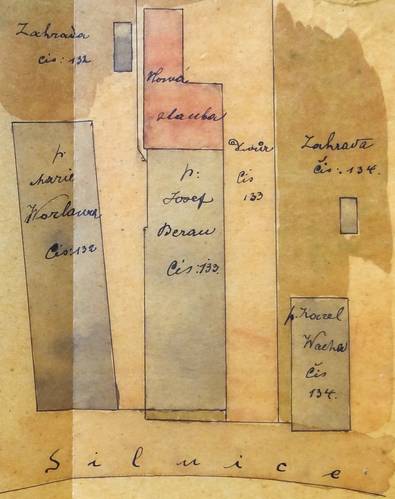 Zahrada
čis: 132
Nová
stavba
Dvůr
čis
133
Zahrada
Čis: 134.
p.
Marie
Čis: 132
p:
Josef
Beran
Čis: 133.
p. Karel
Wacha
Čis
134.
Silnice